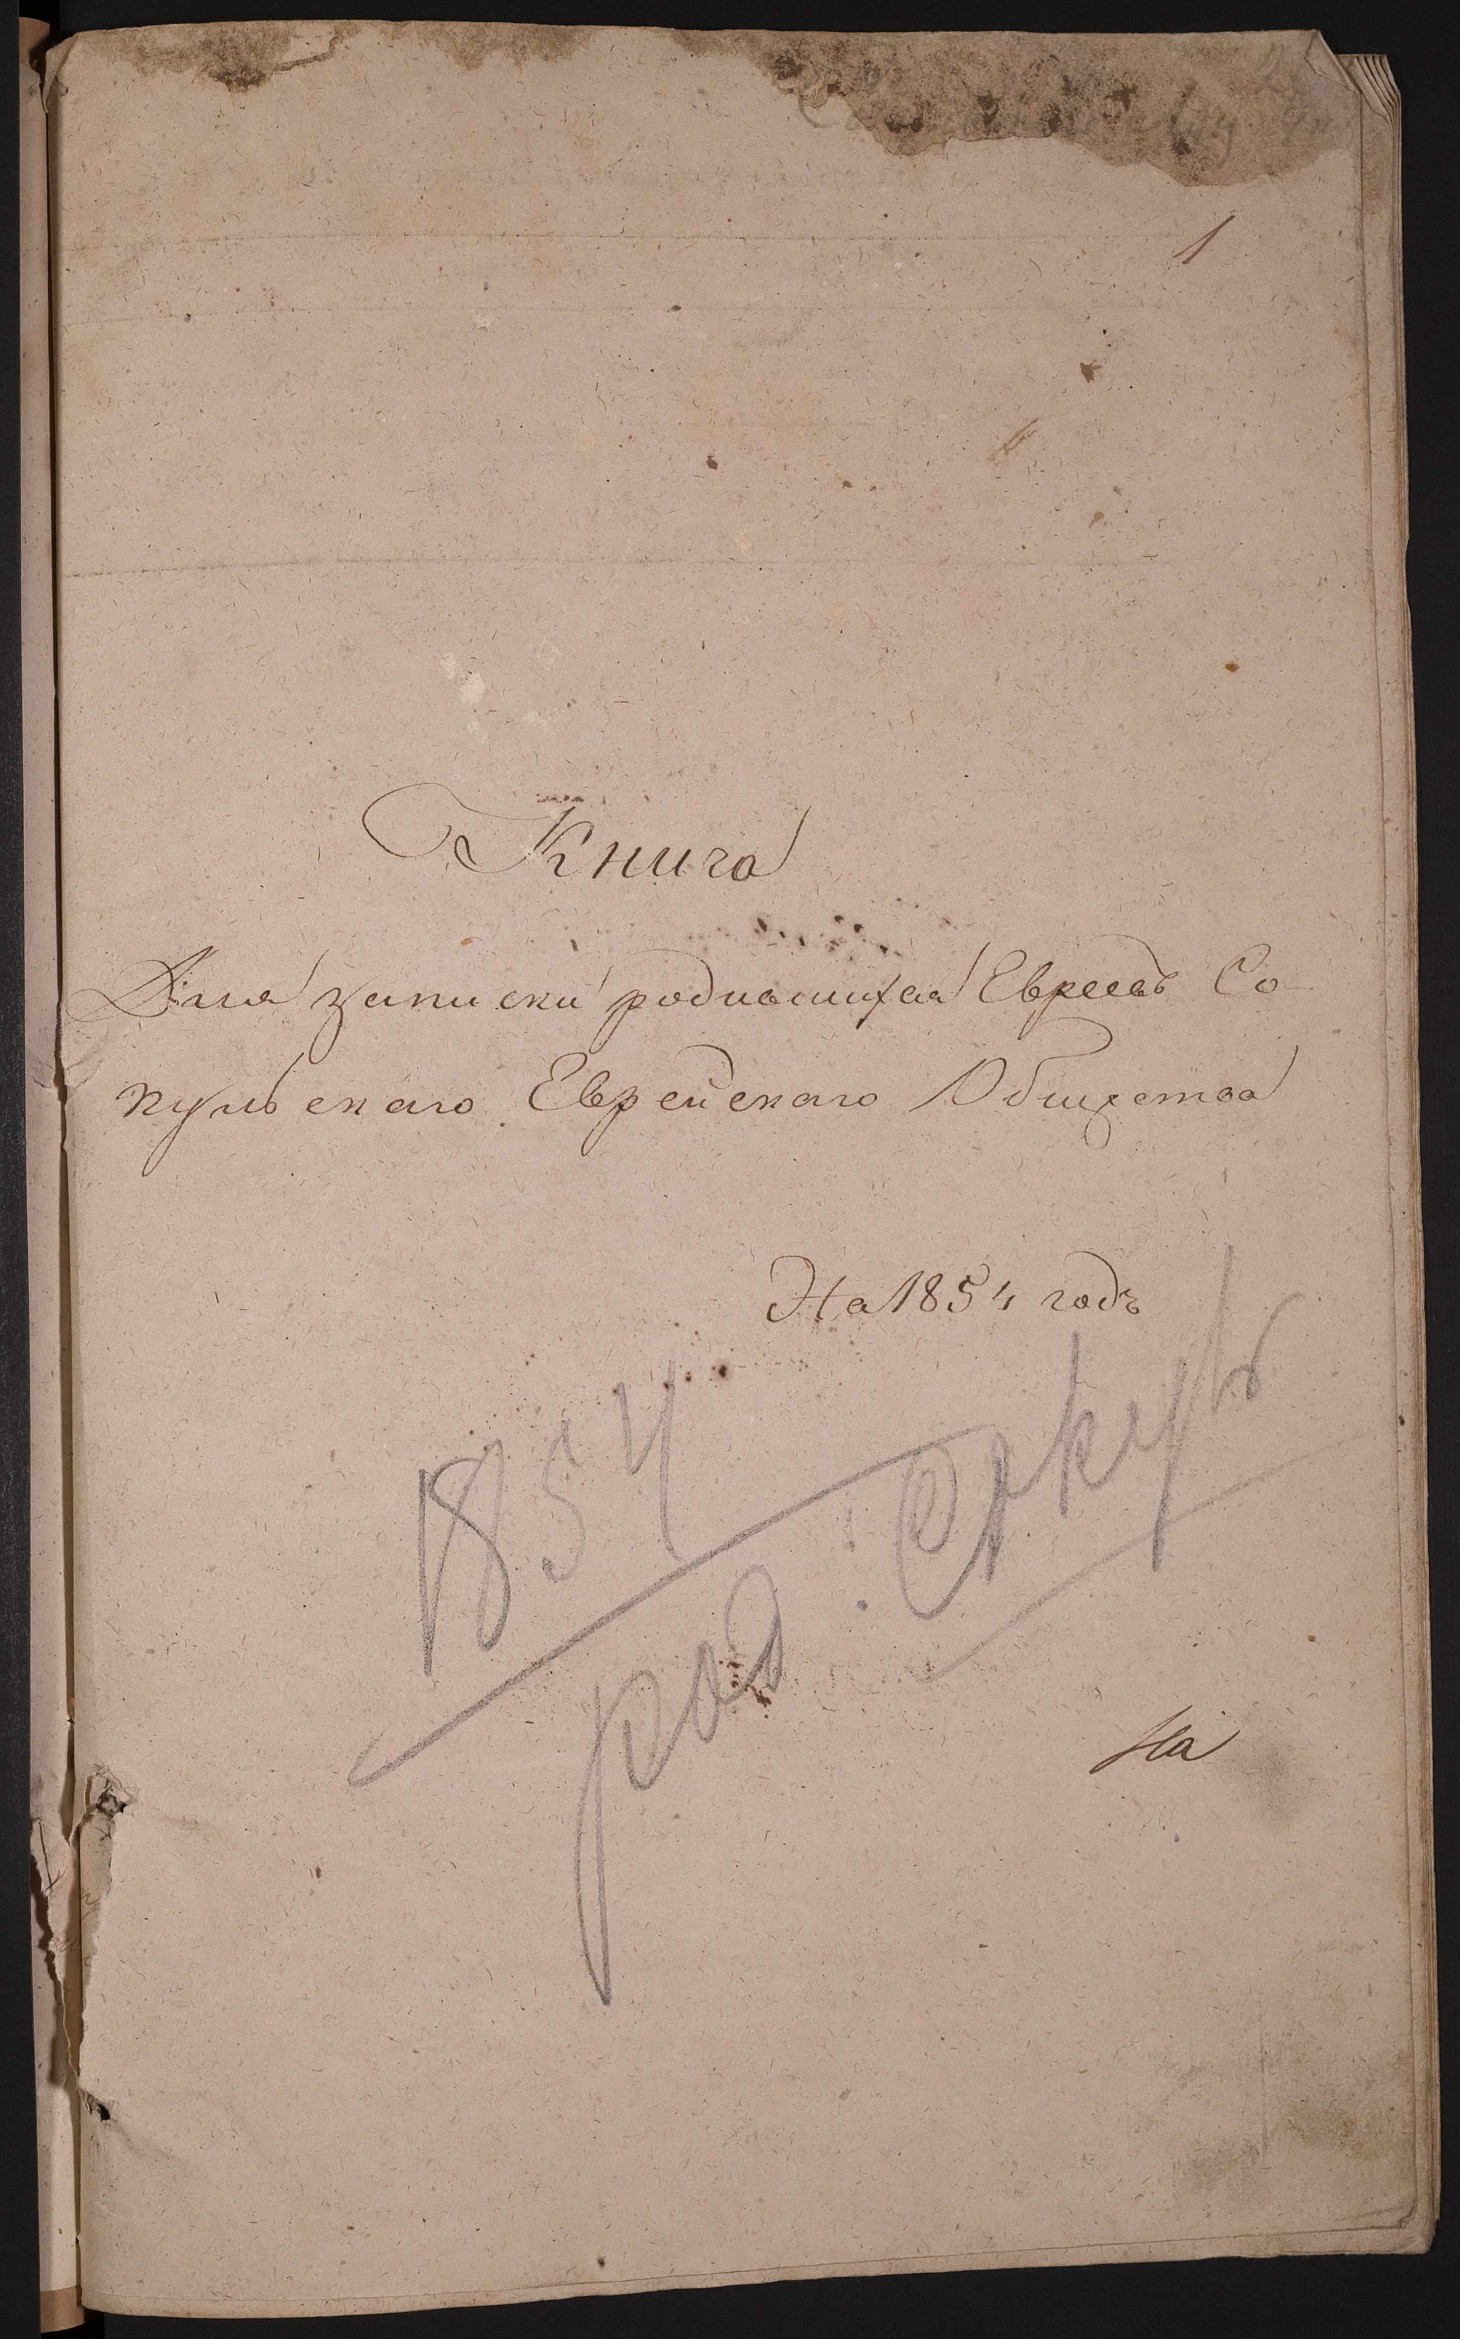 1
Книга
Для записки родившихся Евреевъ Со-
кульскаго Еврейскаго Общества
На 1854 годъ
1854
род:
На